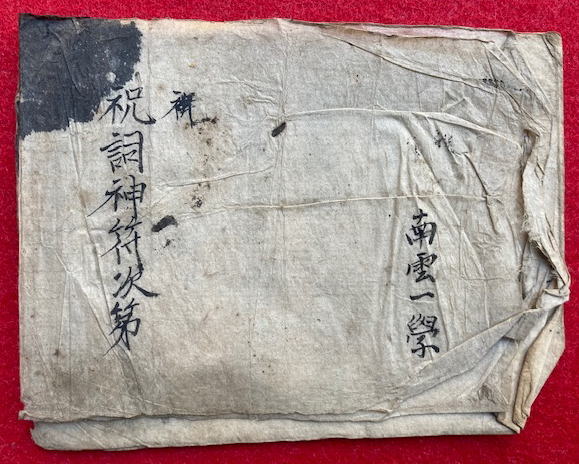 南雲一學
祝詞神符次第